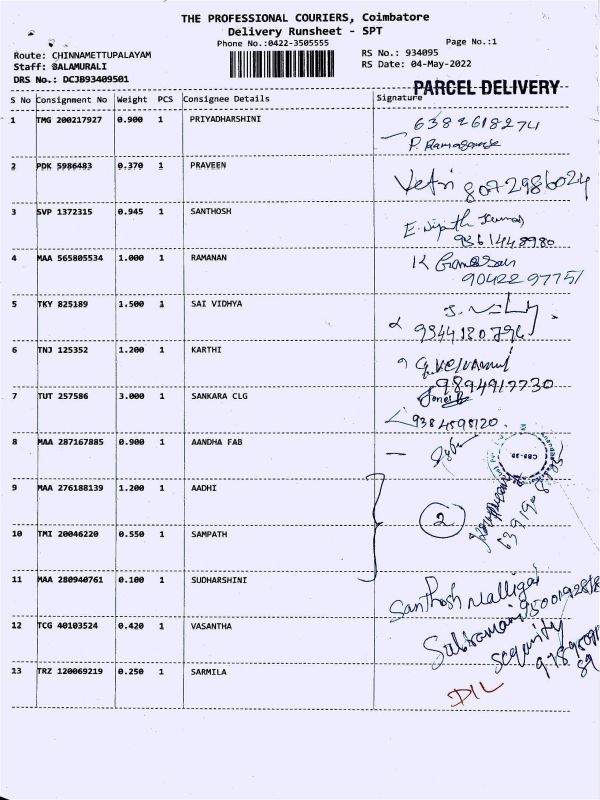 THE PROFESSIONAL COURIERS, Coimbatore
Delivery Runsheet - SPT
Phone No.:0422-3505555
Page No.:1
Route: CHINNAMETTUPALAYAM
RS No.: 934095
Staff: BALAMURALI
RS Date: 04-May-2022
DRS No.: DCJB93409501
PARCEL DELIVERY
S No Consignment No Weight PCS Consignee Details Signature
1 TMG 200217927 0.900 1 PRIYADHARSHINI 6382618274
2 PDK 5986483 0.370 1 PRAVEEN Vetri 8072986024
3 SVP 1372315 0.945 1 SANTHOSH
9361448980
4 MAA 565805534 1.000 1 RAMANAN
90422 97751
5 TKY 825189 1.500 1 SAI VIDHYA
9344180796
6 TNJ 125352 1.200 1 KARTHI
9894917730
7 TUT 257586 3.000 1 SANKARA CLG
9384598120
8 MAA 287167885 0.900 1 AANDHA FAB
9 MAA 276188139 1.200 1 AADHI
2
10 TMI 20046220 0.550 1 SAMPATH
11 MAA 280940761 0.100 1 SUDHARSHINI
Santhosh Nalligai
12 TCG 40103524 0.420 1 VASANTHA
Subramani
13 TRZ 120069219 0.250 1 SARMILA
D/L